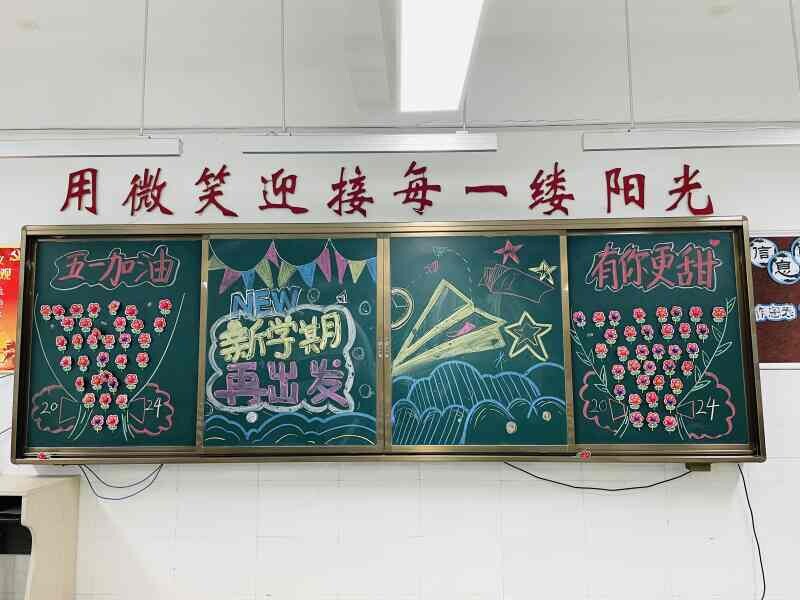 用微笑迎接每一缕阳光
五一加油
NEW
新学期
再出发
有你更甜
2024
2024
信息